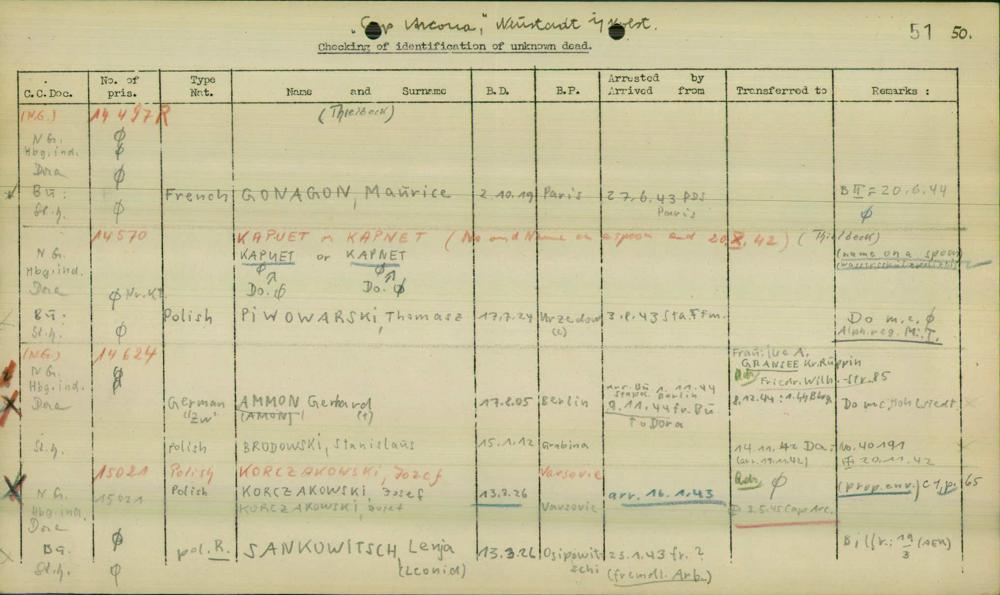 "Cap Arcona", Neustadt i/Holst.
51 50.
Checking of identification of unknown dead.
C.C.Doc. No. of pris. Type Nat. Name and Surname B.D. B.P. Arrested by Arrived from Transferred to Remarks :
(N.G.) 14497 R (Thielbeck)
N G. ∅
Hbg.ind. ∅
Dora ∅
Bu : French GONAGON, Maurice 2.10.19 Paris 27.6.43 BDS Paris B II = 20.6.44
St.h. ∅ ∅
14570 KAPUET or KAPNET (No and Name on a spoon and 20.X.42) (Thielbeck)
N G. KAPUET or KAPNET (name on a spoon)
Hbg.ind. ∅ ∅
Dora ∅ Nr.KT Do. ∅ Do. ∅
Bu : Polish PIWOWARSKI, Thomasz 17.7.24 Urzedow (c) 3.8.43 Do m.c. ∅
St.h. ∅ Alph.reg. M.T.
(N.G.) 14624 GRANSEE Kr. Ruppin
N G. ∅ Adr. Friedr. Wilh.-Str. 85
Hbg.ind. ∅
Dora German "ZW" AMMON Gerhard (AMON) 17.8.05 Berlin arr. Bu 1.11.44 Stapol. Berlin 9.11.44 fr. Bu to Dora
St.h. polish BRODOWSKI, Stanislaus 15.1.12 Grabina 14.11.42 Da: (arr. 19.11.42) No. 40191 20.11.42
15021 Polish KORCZAKOWSKI, Jozef Varsovie
N G. 15021 Polish KORCZAKOWSKI, Josef 13.2.26 arr. 16.1.43 Adr. ∅ (prop.env.) C 1, p. 65
Hbg.ind. KORCZAKOWSKI, Josef Varsovie 3.5.45 Cap Arc.
Dora ∅
Bu. pol. R. SANKOWITSCH, Lenja 13.3.26 Osipowitschi 23.1.43 fr. ?
St.h. ∅ (Leonid) (fremdl. Arb.)